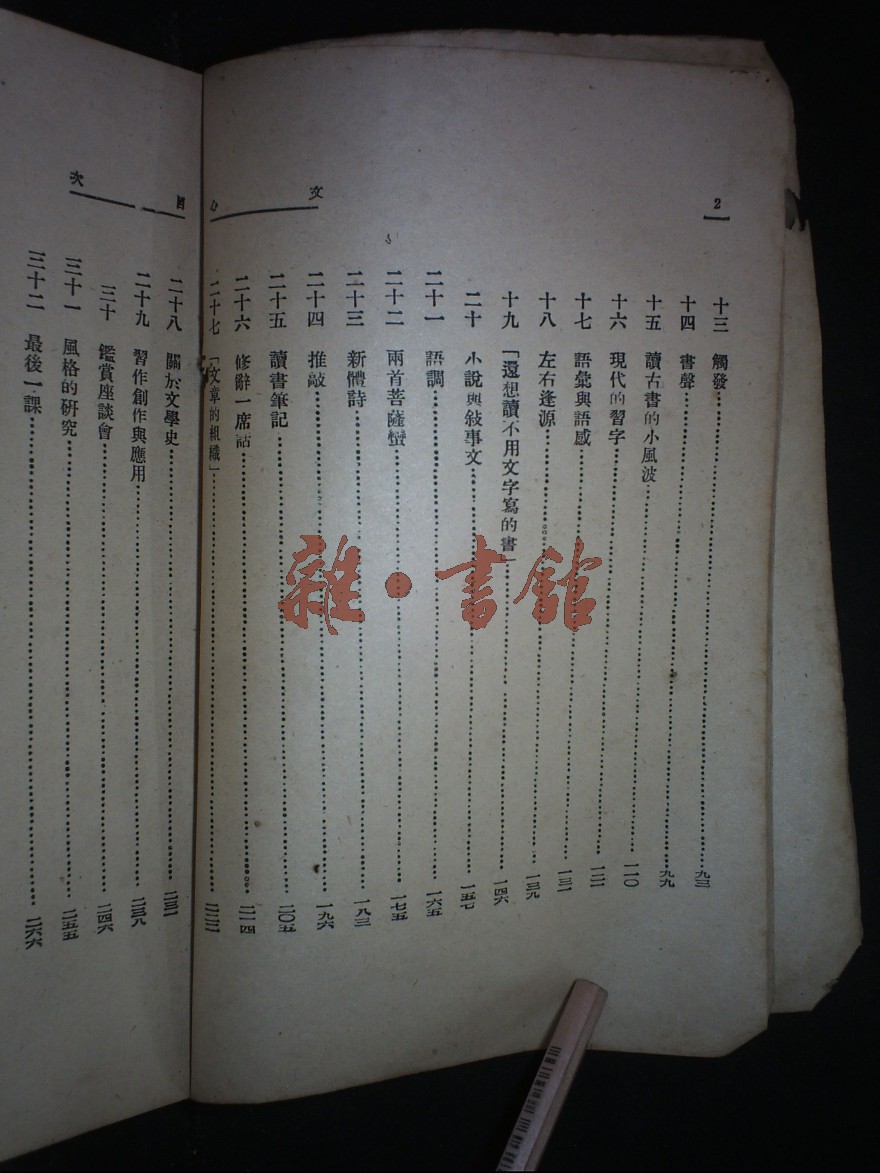 2
文心
十三 觸發……九三
十四 書聲……九九
十五 讀古書的小風波……一一〇
十六 現代的習字……一二一
十七 語彙與語感……一三一
十八 左右逢源……一三九
十九 「還想讀不用文字寫的書」……一四六
二十 小說與敍事文……一五七
二十一 語調……一六五
二十二 兩首菩薩蠻……一七五
二十三 新體詩……一八三
二十四 推敲……一九六
二十五 讀書筆記……二〇五
二十六 修辭一席話……二一四
二十七 「文章的組織」……二二二
目次
二十八 關於文學史……二三一
二十九 習作創作與應用……二三九
三十 鑑賞座談會……二四六
三十一 風格的研究……二五五
三十二 最後一課……二六六
雜·書館